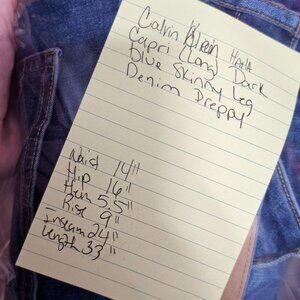 Calvin Klein
Capri (Long) Dark
Blue Skinny Leg
Denim Dreppy
Waist 14"
Hip 16"
Hem 5.5"
Rise 9"
Inseam 24"
Length 33"